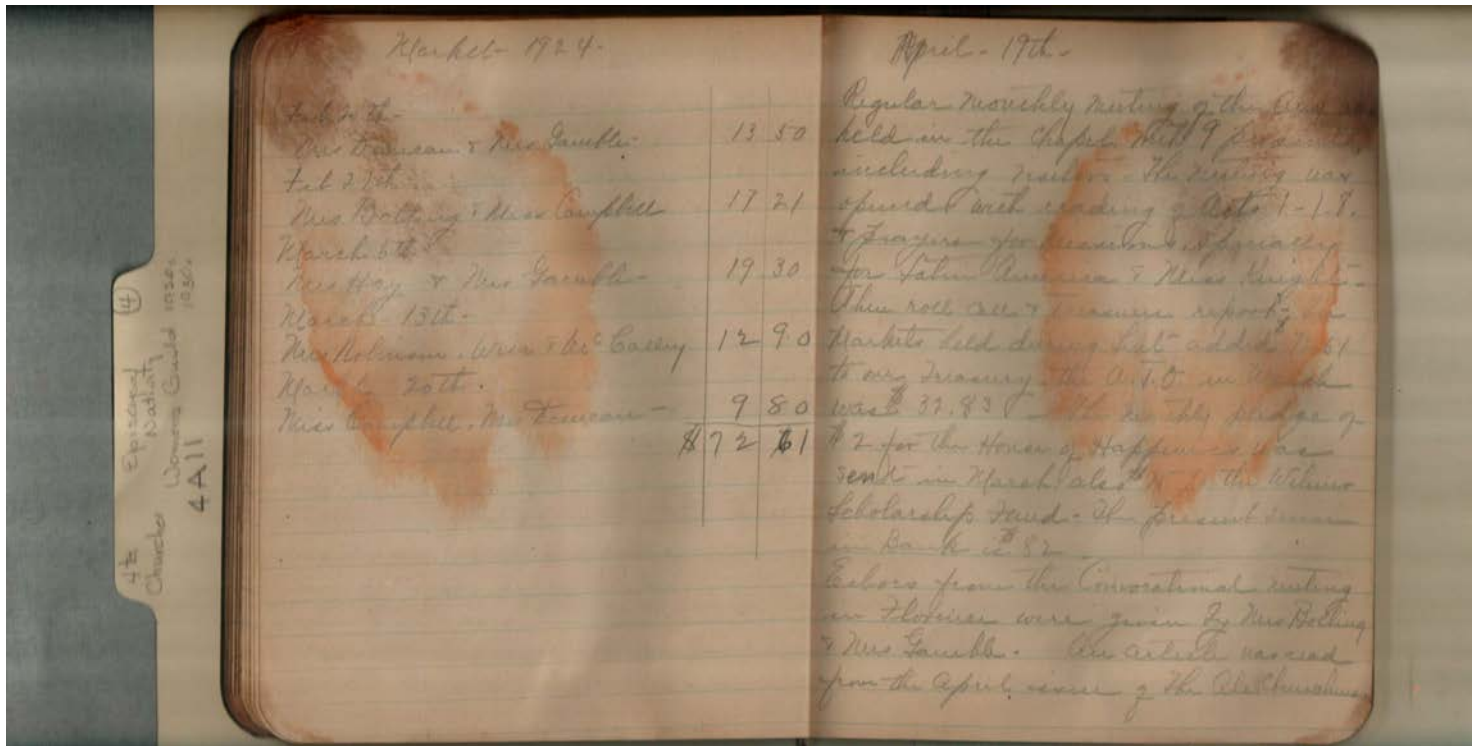 Market - 1924 -
Feb 20th -
Mrs Duncan & Mrs Gamble - 13 50
Feb 27th -
Mrs Bolling & Miss Campbell 17 21
March 6th
Mrs Hay & Mrs Gamble - 19 30
March 13th -
Mrs Robinson, & Mc Calley 12 90
March 20th -
Miss Campbell, Mrs Duncan - 9 80
$ 72 61
April - 19th -
Regular Monthly Meeting of the
held in the Chapel with 9 present,
including visitors - The meeting was
opened with reading of Acts 1-1.8.
& Prayers for missions, specially
for Latin America & Miss Knight -
Then roll call & treasurers report
Markets held during Lent added 72.61
to our Treasury the in March
was $32.83 - The monthly pledge of
$2 for the House of Happiness was
sent in March also to the Wilmer
Scholarship Fund - The present
in Bank is $82
Echoes from the Convocational meeting
in Florence were given by Mrs Bolling
& Mrs Gamble - An article was read
from the April issue of The Ala Churchman
4
Episcopal
Nativity
1920s
1930s
Womens Guild
4A11
Churches